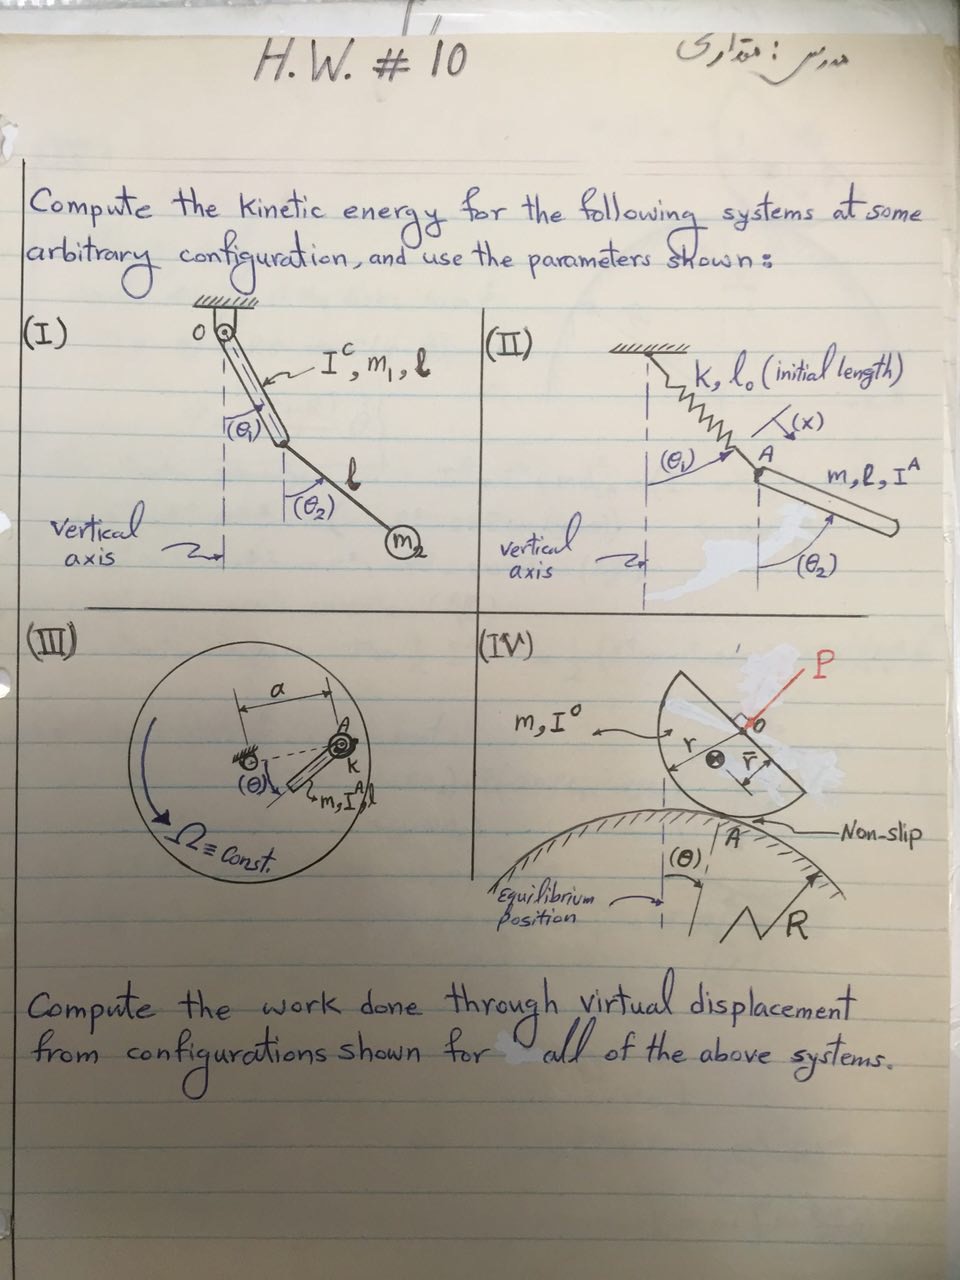 H.W. # 10
مدرس: مقداری
Compute the kinetic energy for the following systems at some
arbitrary configuration, and use the parameters shown:
(I)
O
I^C, m₁, l
(θ₁)
l
(θ₂)
m₂
vertical
axis
(II)
k, l₀ (initial length)
(x)
(θ₁)
A
m, l, I^A
vertical
axis
(θ₂)
(III)
a
A
k
(θ)
m, I^A, l
Ω ≡ Const.
(IV)
P
m, I^O
O
r
r̄
Non-slip
A
(θ)
Equilibrium
position
R
Compute the work done through virtual displacement
from configurations shown for all of the above systems.